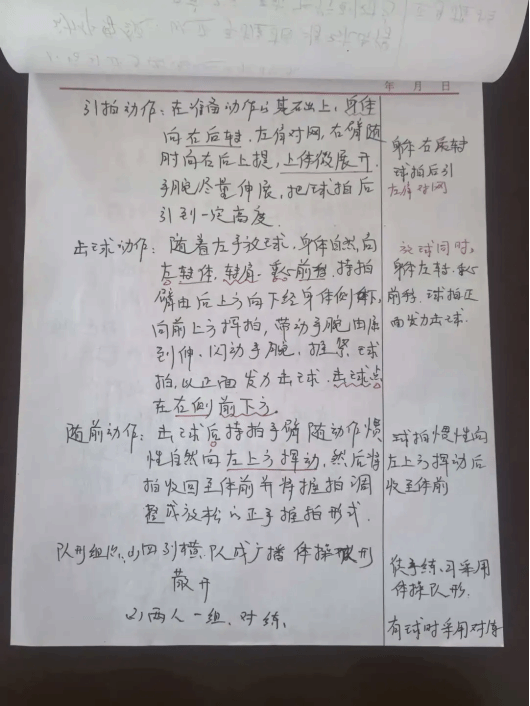 年 月 日
引拍动作：在准备动作的基础上，身体
向右后转，左肩对网，右臂随
时向右后上提，上体微展开，
手腕尽量伸展，把球拍后
引到一定高度．
击球动作：随着左手放球，身体自然向
左转体，转肩．重心前移，持拍
臂由后上方向下经身体侧下，
向前上方挥拍，带动手腕由屈
到伸．闪动手腕，握紧球
拍，以正面发力击球．击球点
在右侧前下方．
随前动作：击球后持拍手臂随动作惯
性自然向左上方挥动，然后将
拍收回至体前并将握拍调
整成放松的正手握拍形式．
队形组织：(1)四列横队成广播体操队形
散开
(2)两人一组，对练．
身体右后转
球拍后引
左肩对网
放球同时，
身体左转．重心
前移．球拍正
面发力击球．
球拍惯性向
左上方挥动后
收至体前
徒手练习采用
体操队形．
有球时采用对练